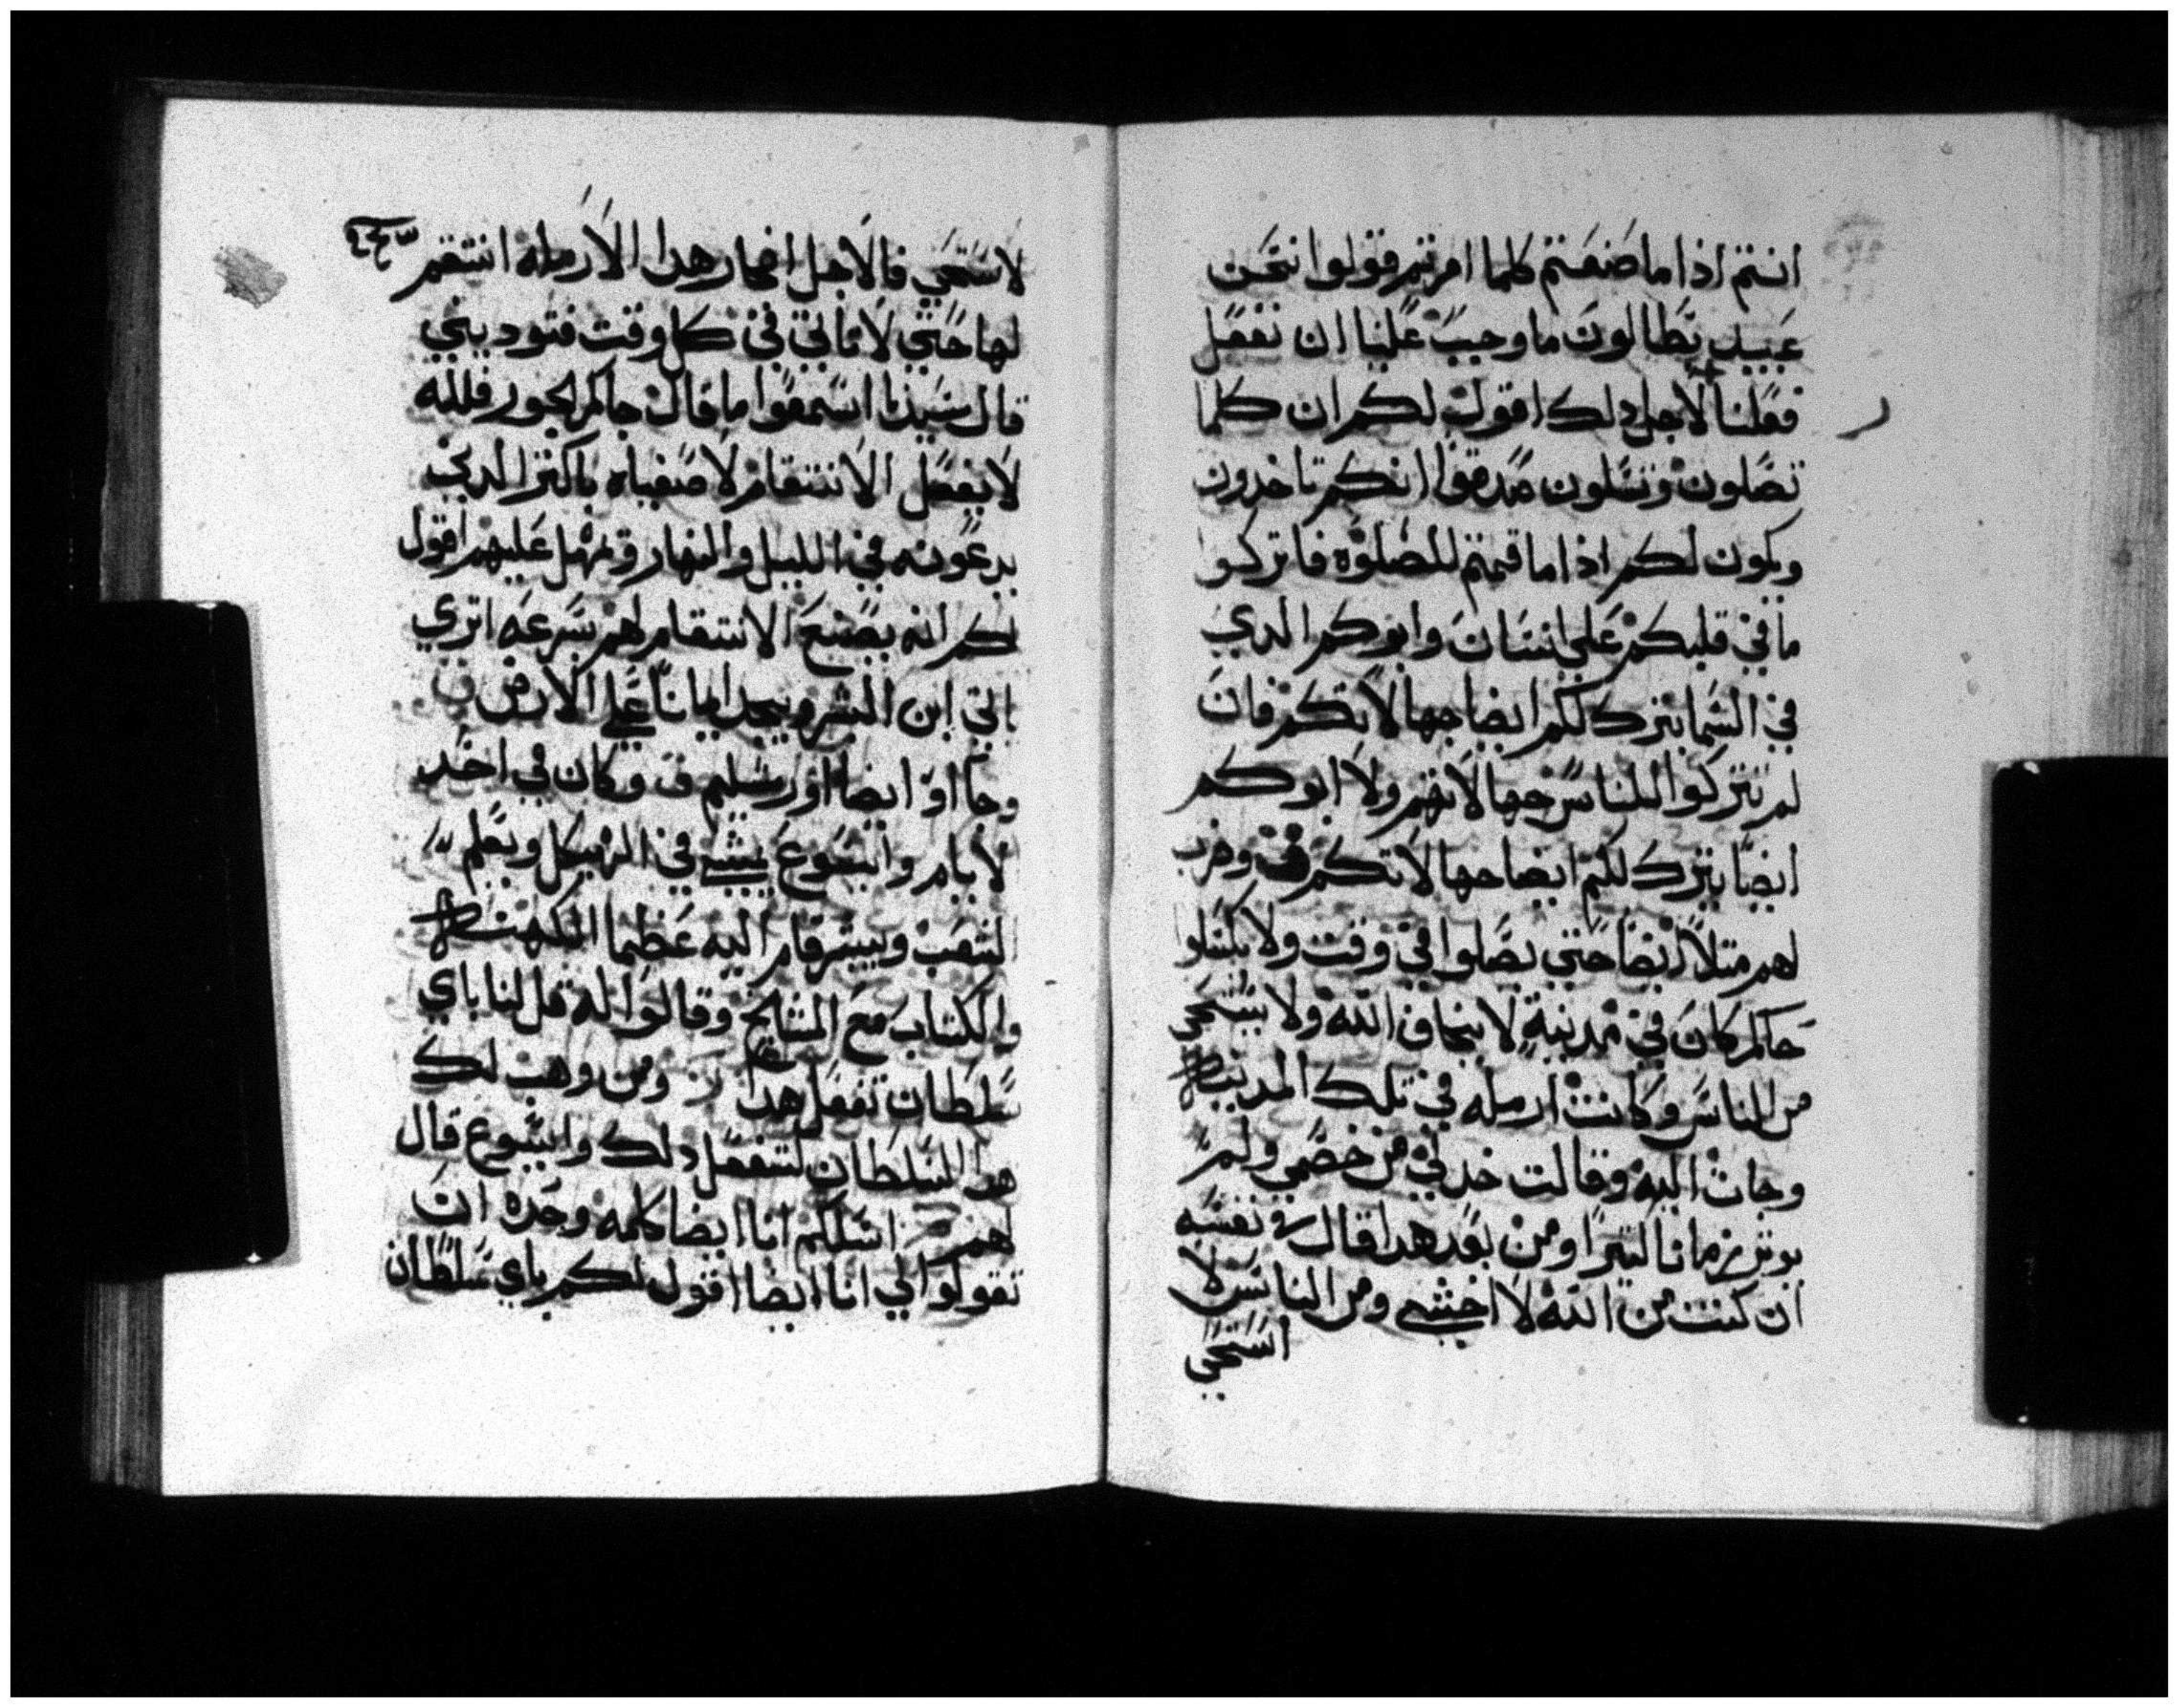 انتم اذا ما صنعتم كلما امرتم فقولوا نحن
عبيد بطالون ما وجب علينا ان نفعل
فعلنا لاجل دلك اقول لكم ان كلما
تصلون وتسلون صدقوا انكم تاخدون
ويكون لكم اذا ما قمتم للصلوة فاتركوا
ما في قلبكم علي انسان وابوكم الدي
في السما يترك لكم ايضا جهالاتكم فان
لم تتركوا للناس جهالاتهم ولا ابوكم
ايضا يترك لكم ايضا جهالاتكم وضرب
لهم مثلا ايضا حتي يصلوا في وقت ولا يكسلوا
حاكم كان في مدينة لا يخاف الله ولا يستحي
من الناس وكانت ارمله في تلك المدينه
وجات اليه وقالت خد لي من خصمي ولم
يوثر زمانا كثيرا ومن بعد هدا قال في نفسه
ان كنت من الله لا اخشي ومن الناس لا
استحي
ر
لا استحي فالاجل اضجار هدا الارمله انتقم
لها حتي لا تاتي في كل وقت فتوديني
قال سيدنا اسمعوا ما قال حاكم الجور فلله
لا يفعل الانتقام لاصفياه باكثر الدين
يدعونه في الليل والنهار وتمهل عليهم اقول
لكم انه يصنع الانتقام لهم بسرعه اتري
ياتي ابن البشر ويجد ايمانا علي الارض
وجااوا ايضا اورسليم وكان في احد
الايام وايسوع يمشي في الهيكل ويعلم
الشعب ويبشر قام اليه عظما الكهنه
والكتاب مع المشايخ وقالوا له قل لنا باي
سلطان تفعل هدا ومن وهب لك
هدا السلطان لتفعل دلك وايسوع قال
لهم اسلكم انا ايضا كلمه وحده ان
تقولوا لي انا ايضا اقول لكم باي سلطان